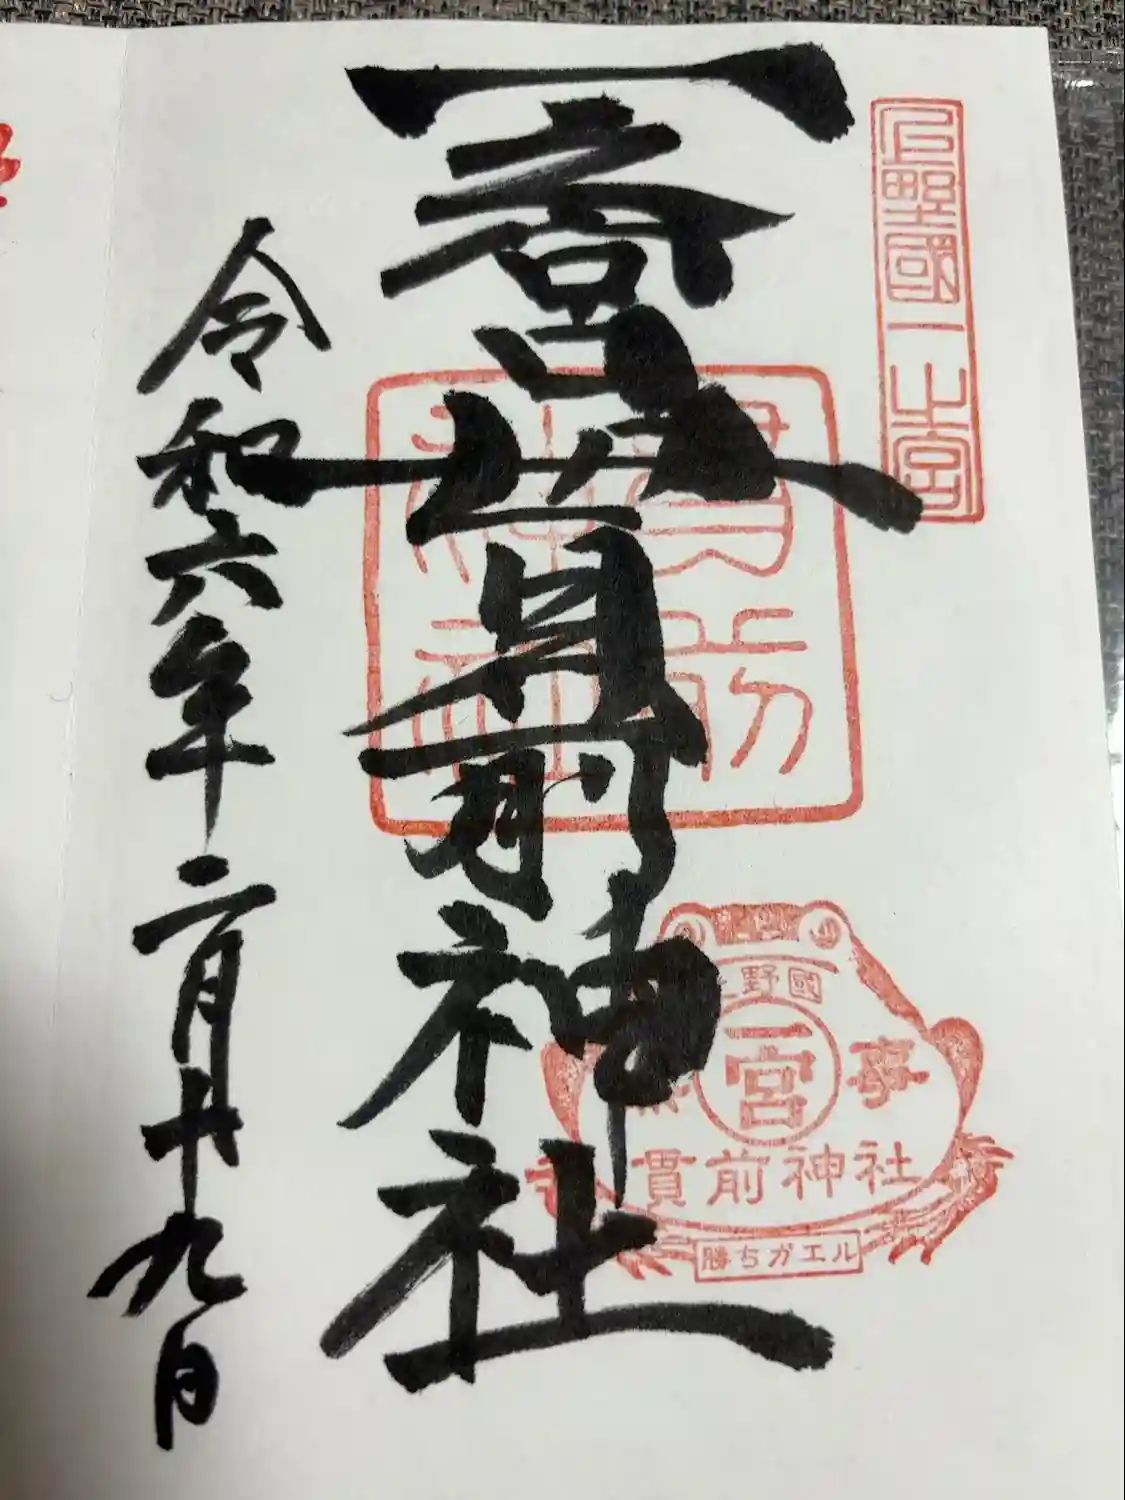 上野國一之宮
一宮貫前神社
貫前
神社
野國
一宮
事
貫前神社
勝ちガエル
令和六年二月廿九日